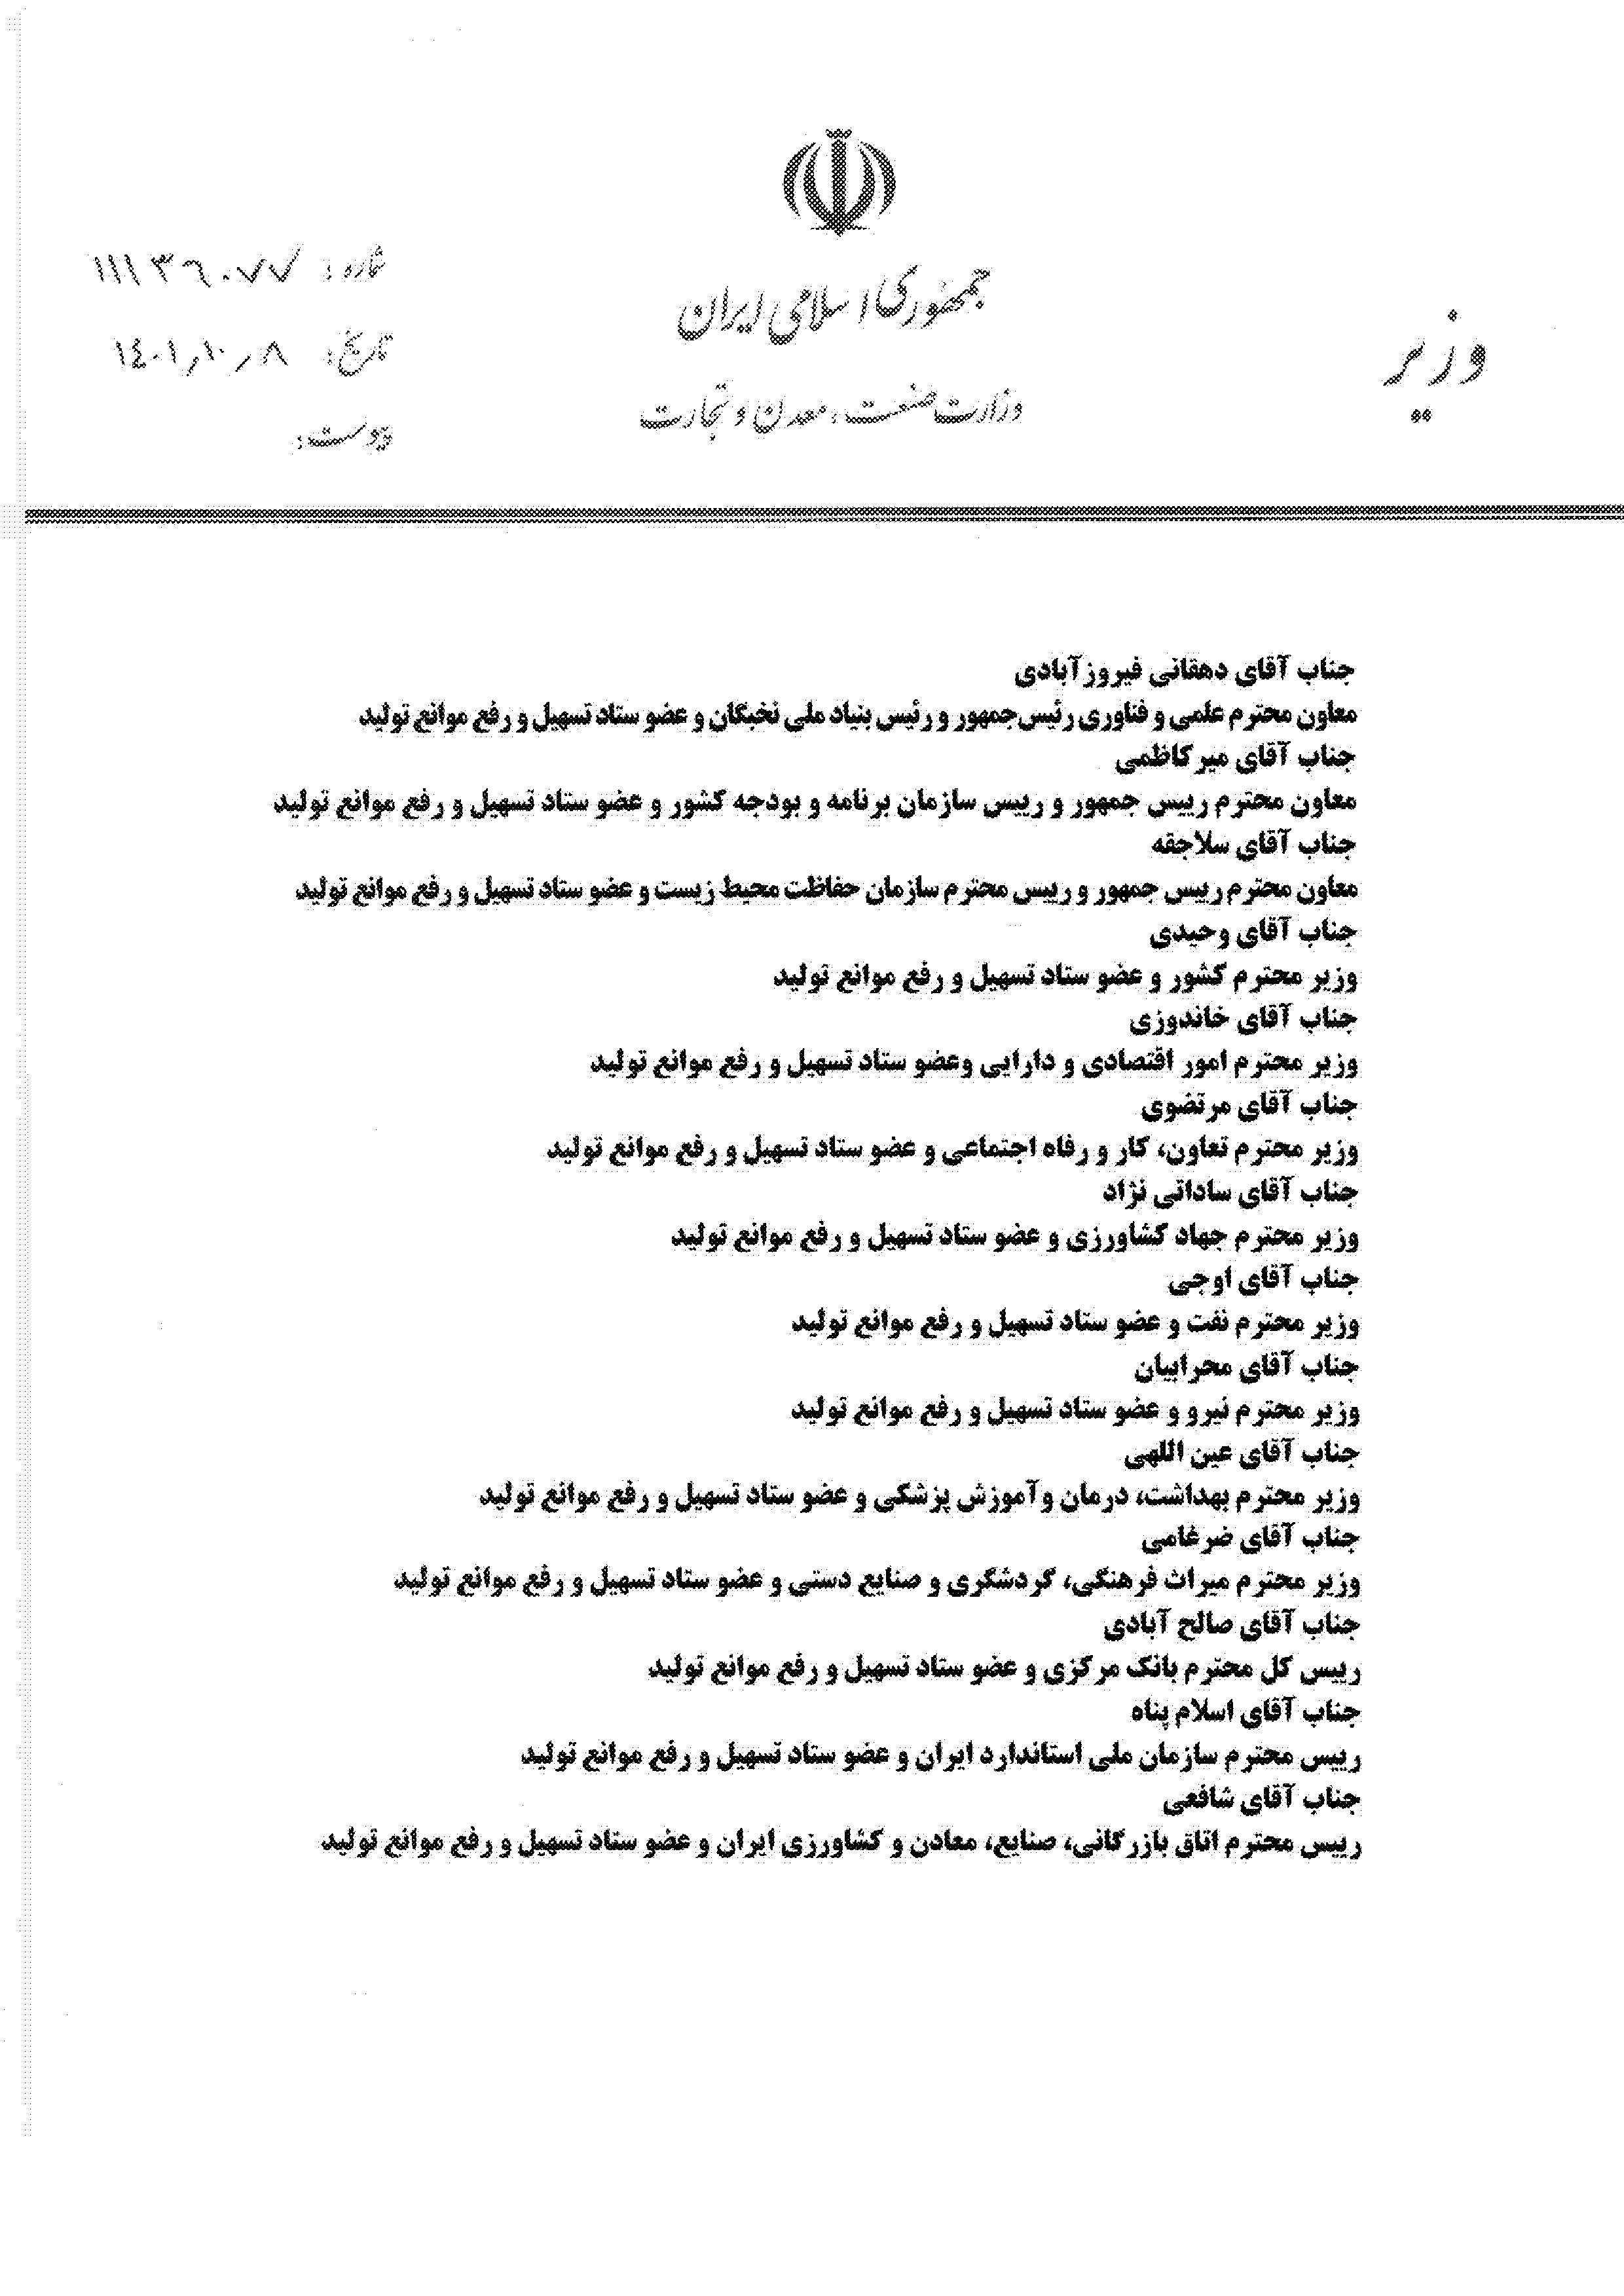 جمهوری اسلامی ایران
وزارت صنعت، معدن و تجارت
وزیر
شماره: ۱۱۱۳۶۰۷۷
تاریخ: ۱۴۰۱٫۱۰٫۸
پیوست:
جناب آقای دهقانی فیروزآبادی
معاون محترم علمی و فناوری رئیس‌جمهور و رئیس بنیاد ملی نخبگان و عضو ستاد تسهیل و رفع موانع تولید
جناب آقای میرکاظمی
معاون محترم رییس جمهور و رییس سازمان برنامه و بودجه کشور و عضو ستاد تسهیل و رفع موانع تولید
جناب آقای سلاجقه
معاون محترم رییس جمهور و رییس محترم سازمان حفاظت محیط زیست و عضو ستاد تسهیل و رفع موانع تولید
جناب آقای وحیدی
وزیر محترم کشور و عضو ستاد تسهیل و رفع موانع تولید
جناب آقای خاندوزی
وزیر محترم امور اقتصادی و دارایی وعضو ستاد تسهیل و رفع موانع تولید
جناب آقای مرتضوی
وزیر محترم تعاون، کار و رفاه اجتماعی و عضو ستاد تسهیل و رفع موانع تولید
جناب آقای ساداتی نژاد
وزیر محترم جهاد کشاورزی و عضو ستاد تسهیل و رفع موانع تولید
جناب آقای اوجی
وزیر محترم نفت و عضو ستاد تسهیل و رفع موانع تولید
جناب آقای محرابیان
وزیر محترم نیرو و عضو ستاد تسهیل و رفع موانع تولید
جناب آقای عین اللهی
وزیر محترم بهداشت، درمان وآموزش پزشکی و عضو ستاد تسهیل و رفع موانع تولید
جناب آقای ضرغامی
وزیر محترم میراث فرهنگی، گردشگری و صنایع دستی و عضو ستاد تسهیل و رفع موانع تولید
جناب آقای صالح آبادی
رییس کل محترم بانک مرکزی و عضو ستاد تسهیل و رفع موانع تولید
جناب آقای اسلام پناه
رییس محترم سازمان ملی استاندارد ایران و عضو ستاد تسهیل و رفع موانع تولید
جناب آقای شافعی
رییس محترم اتاق بازرگانی، صنایع، معادن و کشاورزی ایران و عضو ستاد تسهیل و رفع موانع تولید